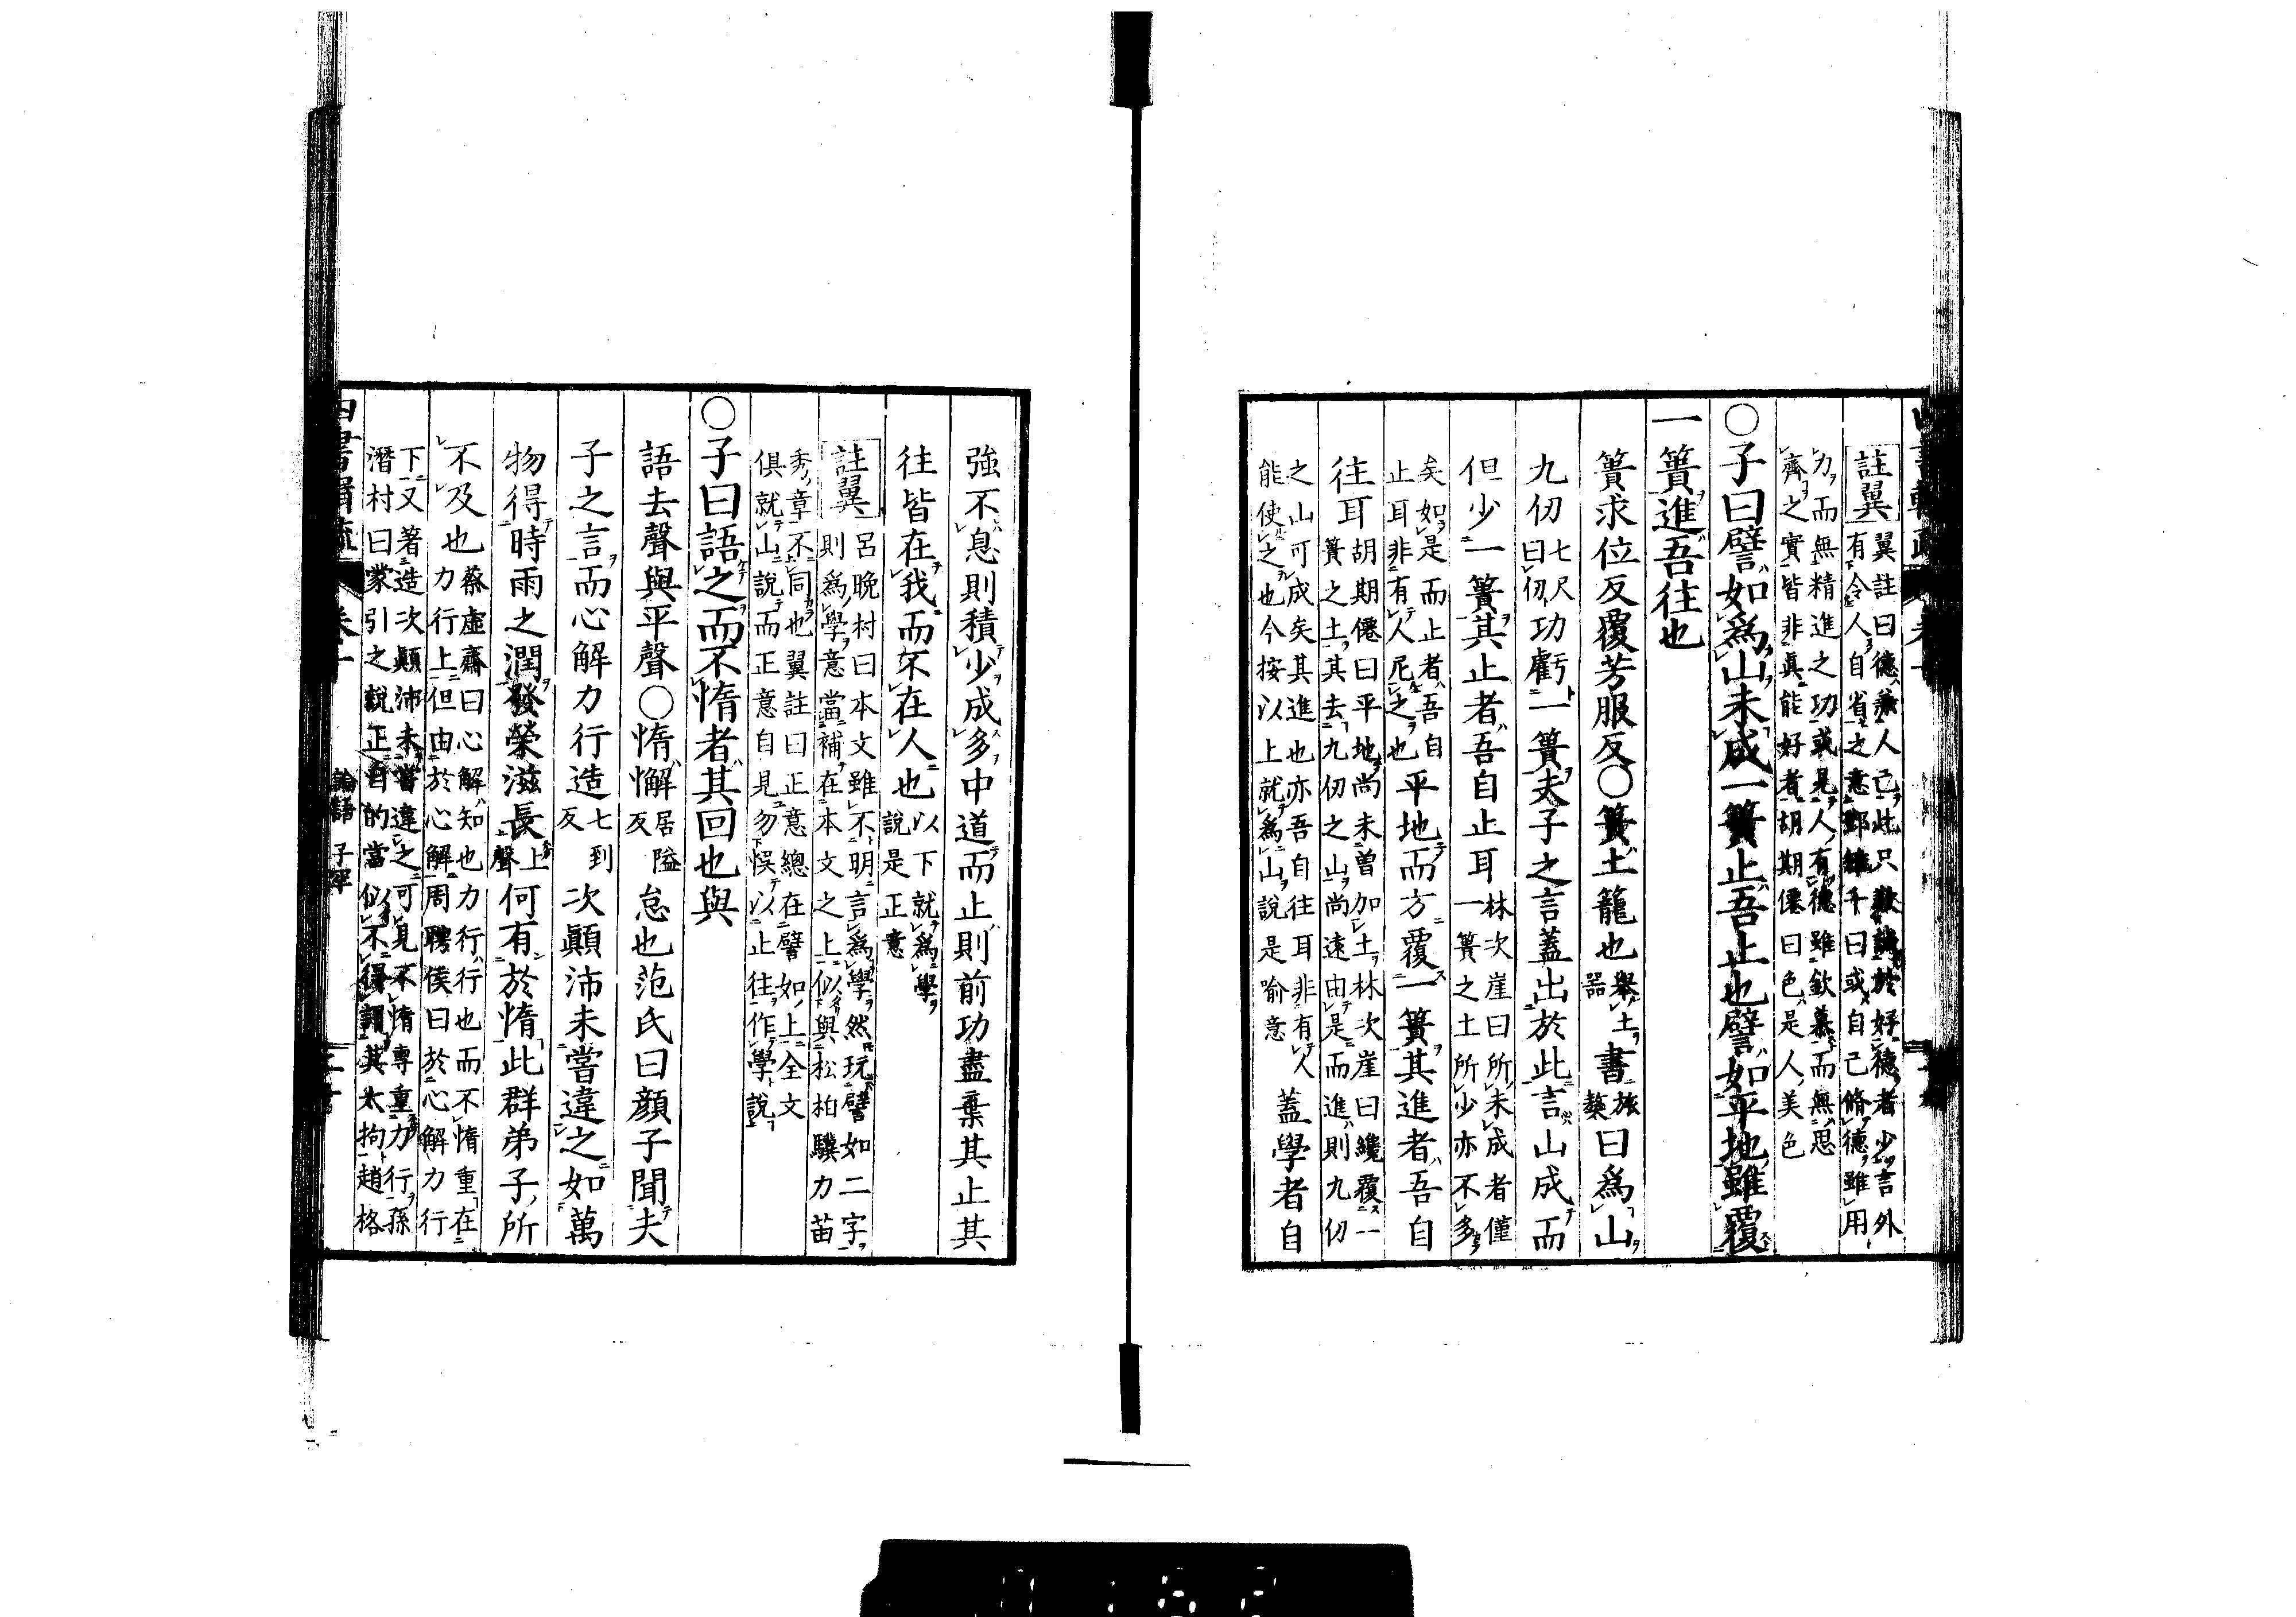 註翼 翼註曰德兼人己此只歎誠於好德者少言外
有令人自省之意鄭維千曰或自己脩德雖用
力而無精進之功或見人有德雖欽慕而無思
齊之實皆非眞能好者胡期僊曰色是人美色
○子曰譬如爲山未成一簣止吾止也譬如平地雖覆
一簣進吾往也
簣求位反覆芳服反○簣土籠也舉土器書旅獒曰爲山
九仞七尺曰仞功虧一簣夫子之言蓋出於此言山成而
但少一簣其止者吾自止耳林次崖曰所未成者僅
一簣之土所少亦不多
矣如是而止者吾自
止耳非有人尼之也平地而方覆一簣其進者吾自
往耳胡期僊曰平地尚未曾加土林次崖曰纔覆一
簣之土其去九仞之山尚遠由是而進則九仞
之山可成矣其進也亦吾自往耳非有人
能使之也今按以上就爲山說是喻意蓋學者自
強不息則積少成多中道而止則前功盡棄其止其
往皆在我而不在人也以下就爲學
說是正意
註翼 呂晚村曰本文雖不明言爲學然玩譬如二字
則爲學意當補在本文之上似與松柏驥力苗
秀章不同也翼註曰正意總在譬如上全文
俱就山說而正意自見勿悞以止往作學說
○子曰語之而不惰者其回也與
語去聲與平聲○惰懈居隘反怠也范氏曰顏子聞夫
子之言而心解力行造七到反次顚沛未嘗違之如萬
物得時雨之潤發榮滋長上聲何有於惰此群弟子所
不及也蔡虛齋曰心解知也力行行也而不惰重在
力行上但由於心解周聘侯曰於心解力行
下又著造次顚沛未嘗違之可見不惰專重力行孫
潛村曰蒙引之說正自的當似不得謂其太拘趙格
論語 子罕